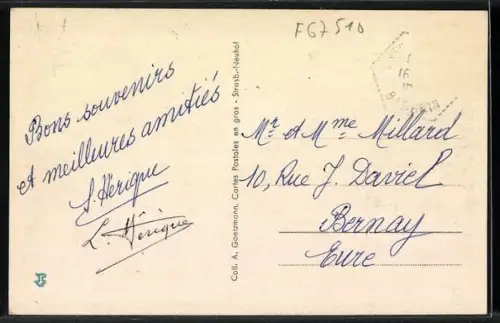 F67510
Bons souvenirs
et meilleures amitiés
S. Hérique
L. Hérique
Coll. A. Goetzmann, Cartes Postales en gros - Strasb.-Neuhof
Mr et Mme Millard
10, Rue J. Daviel
Bernay
Eure
16